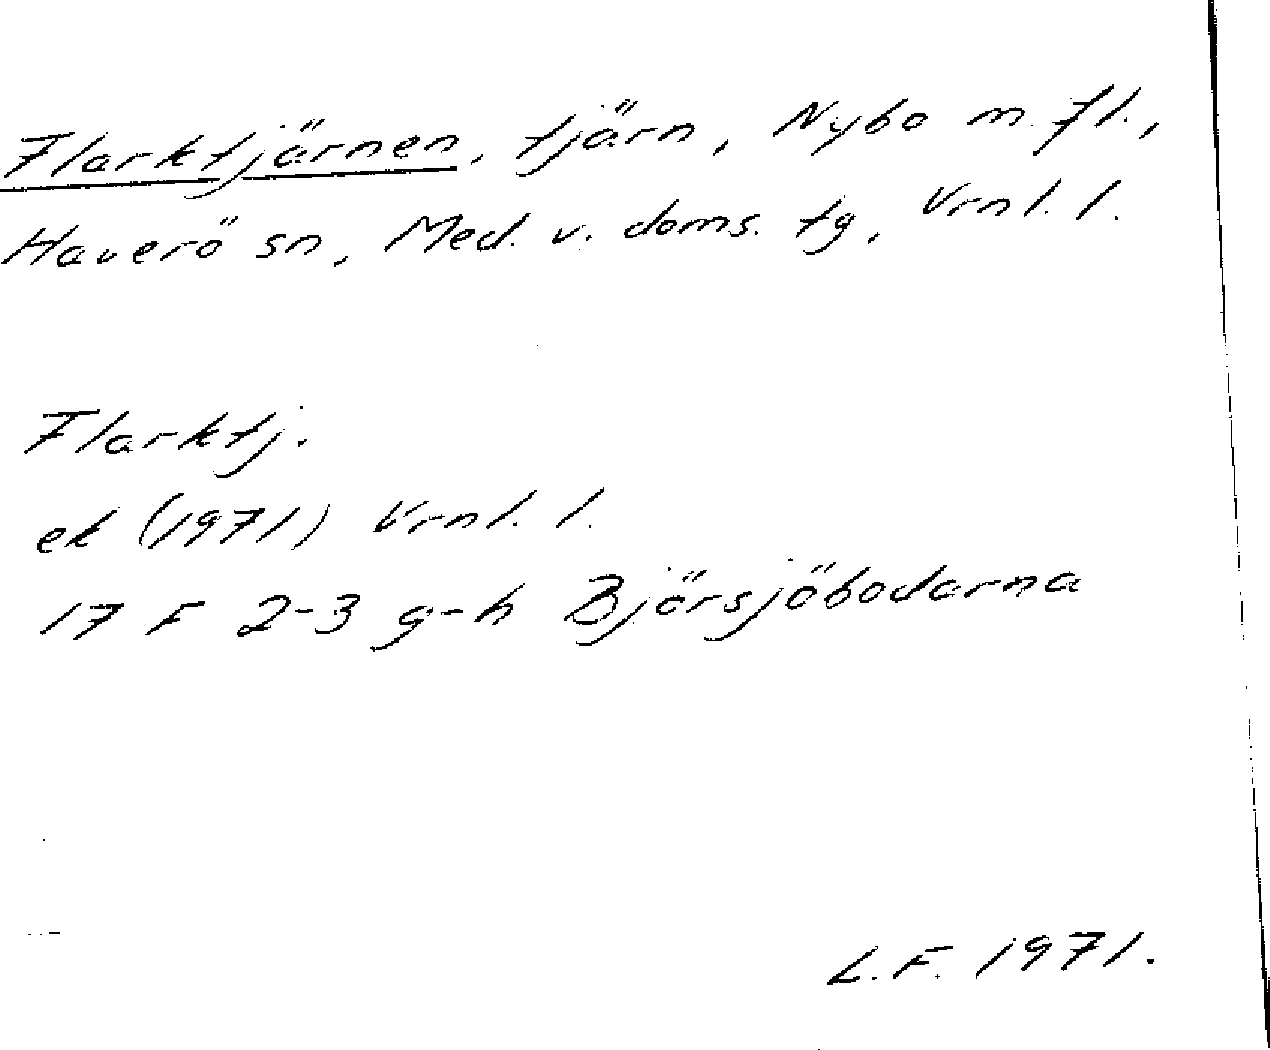 Flarktjärnen, tjärn, Nybo m. fl.,
Haverö sn, Med. v. doms. tg, Vrnl. l.
Flarktj.
ek (1971) Vrnl. l.
17 F 2-3 g-h Björsjöbodarna
L.F. 1971.